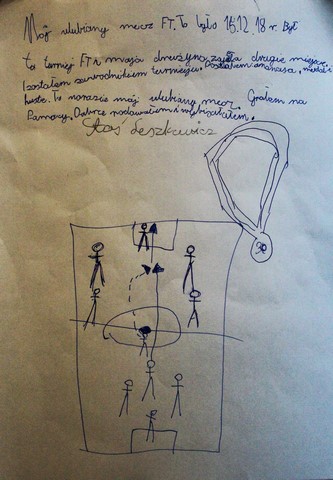 Mój ulubiony mecz FT. To było 16.12.18 r. Był
to turniej FT a moja drużyna zajęła drugie miejsce.
zostałem zawodnikiem turnieju. Dostałem medal
To na razie mój ulubiony mecz. Grałem na
Dobrze podawałem i
Staś Leszkiewicz